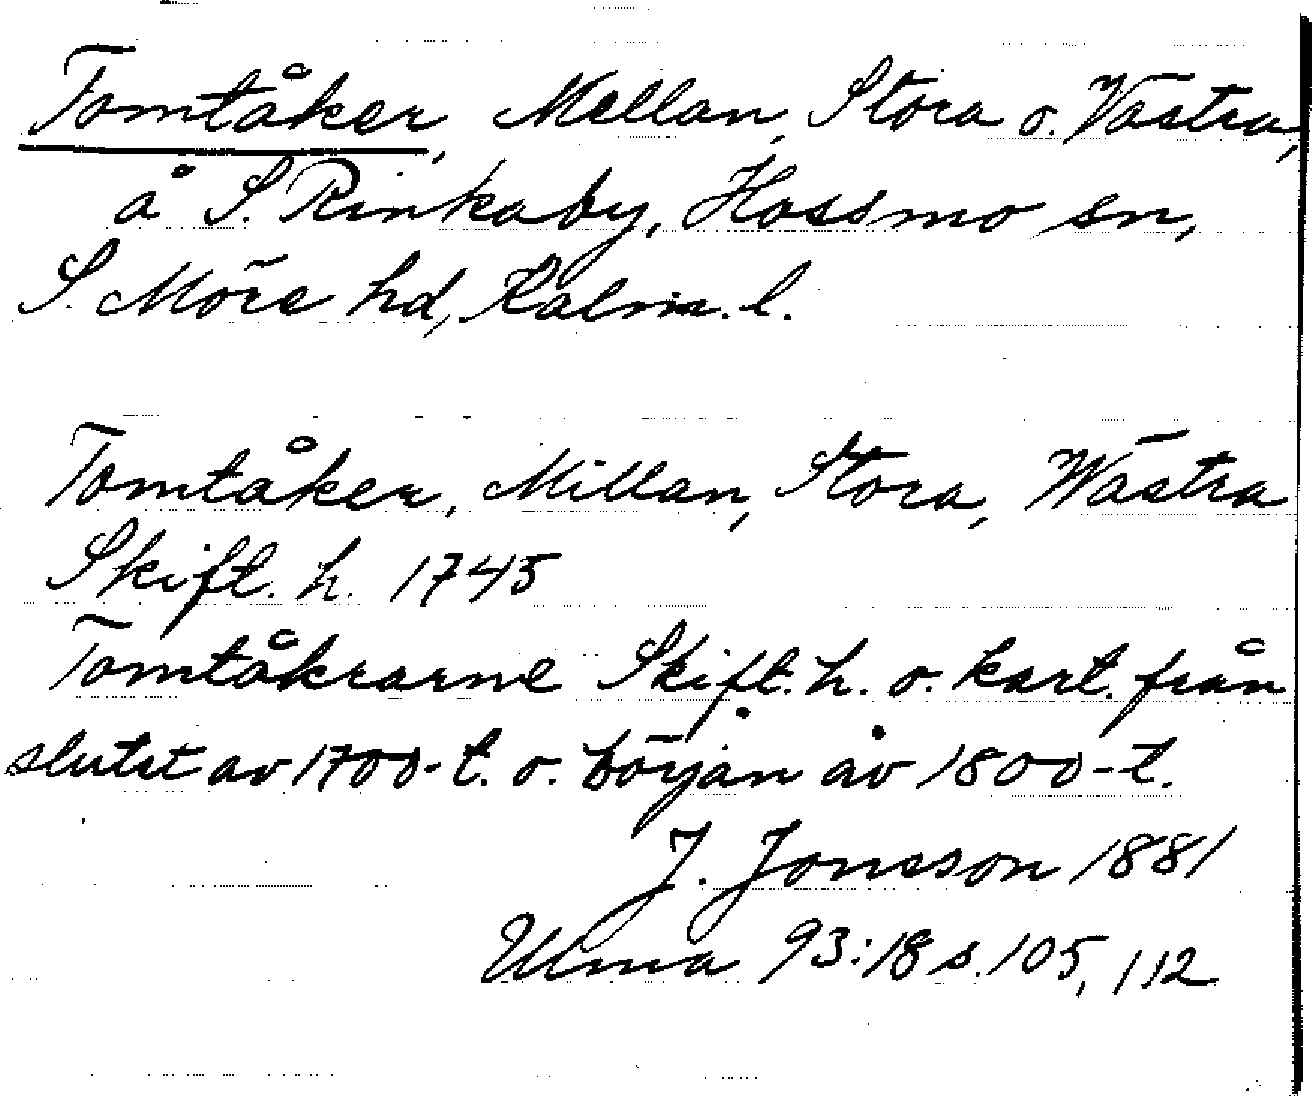 Tomtåker, Mellan, Stora o. Västra,
å S. Rinkaby, Hossmo sn,
S. Möre hd, Kalm. l.
Tomtåker, Millan, Stora, Wästra
Skift. h. 1745
Tomtåkrarne Skift. h. o. kart. från
slutet av 1700-t. o. början av 1800-t.
J. Jonsson 1881
Ulma 93:18 s. 105, 112